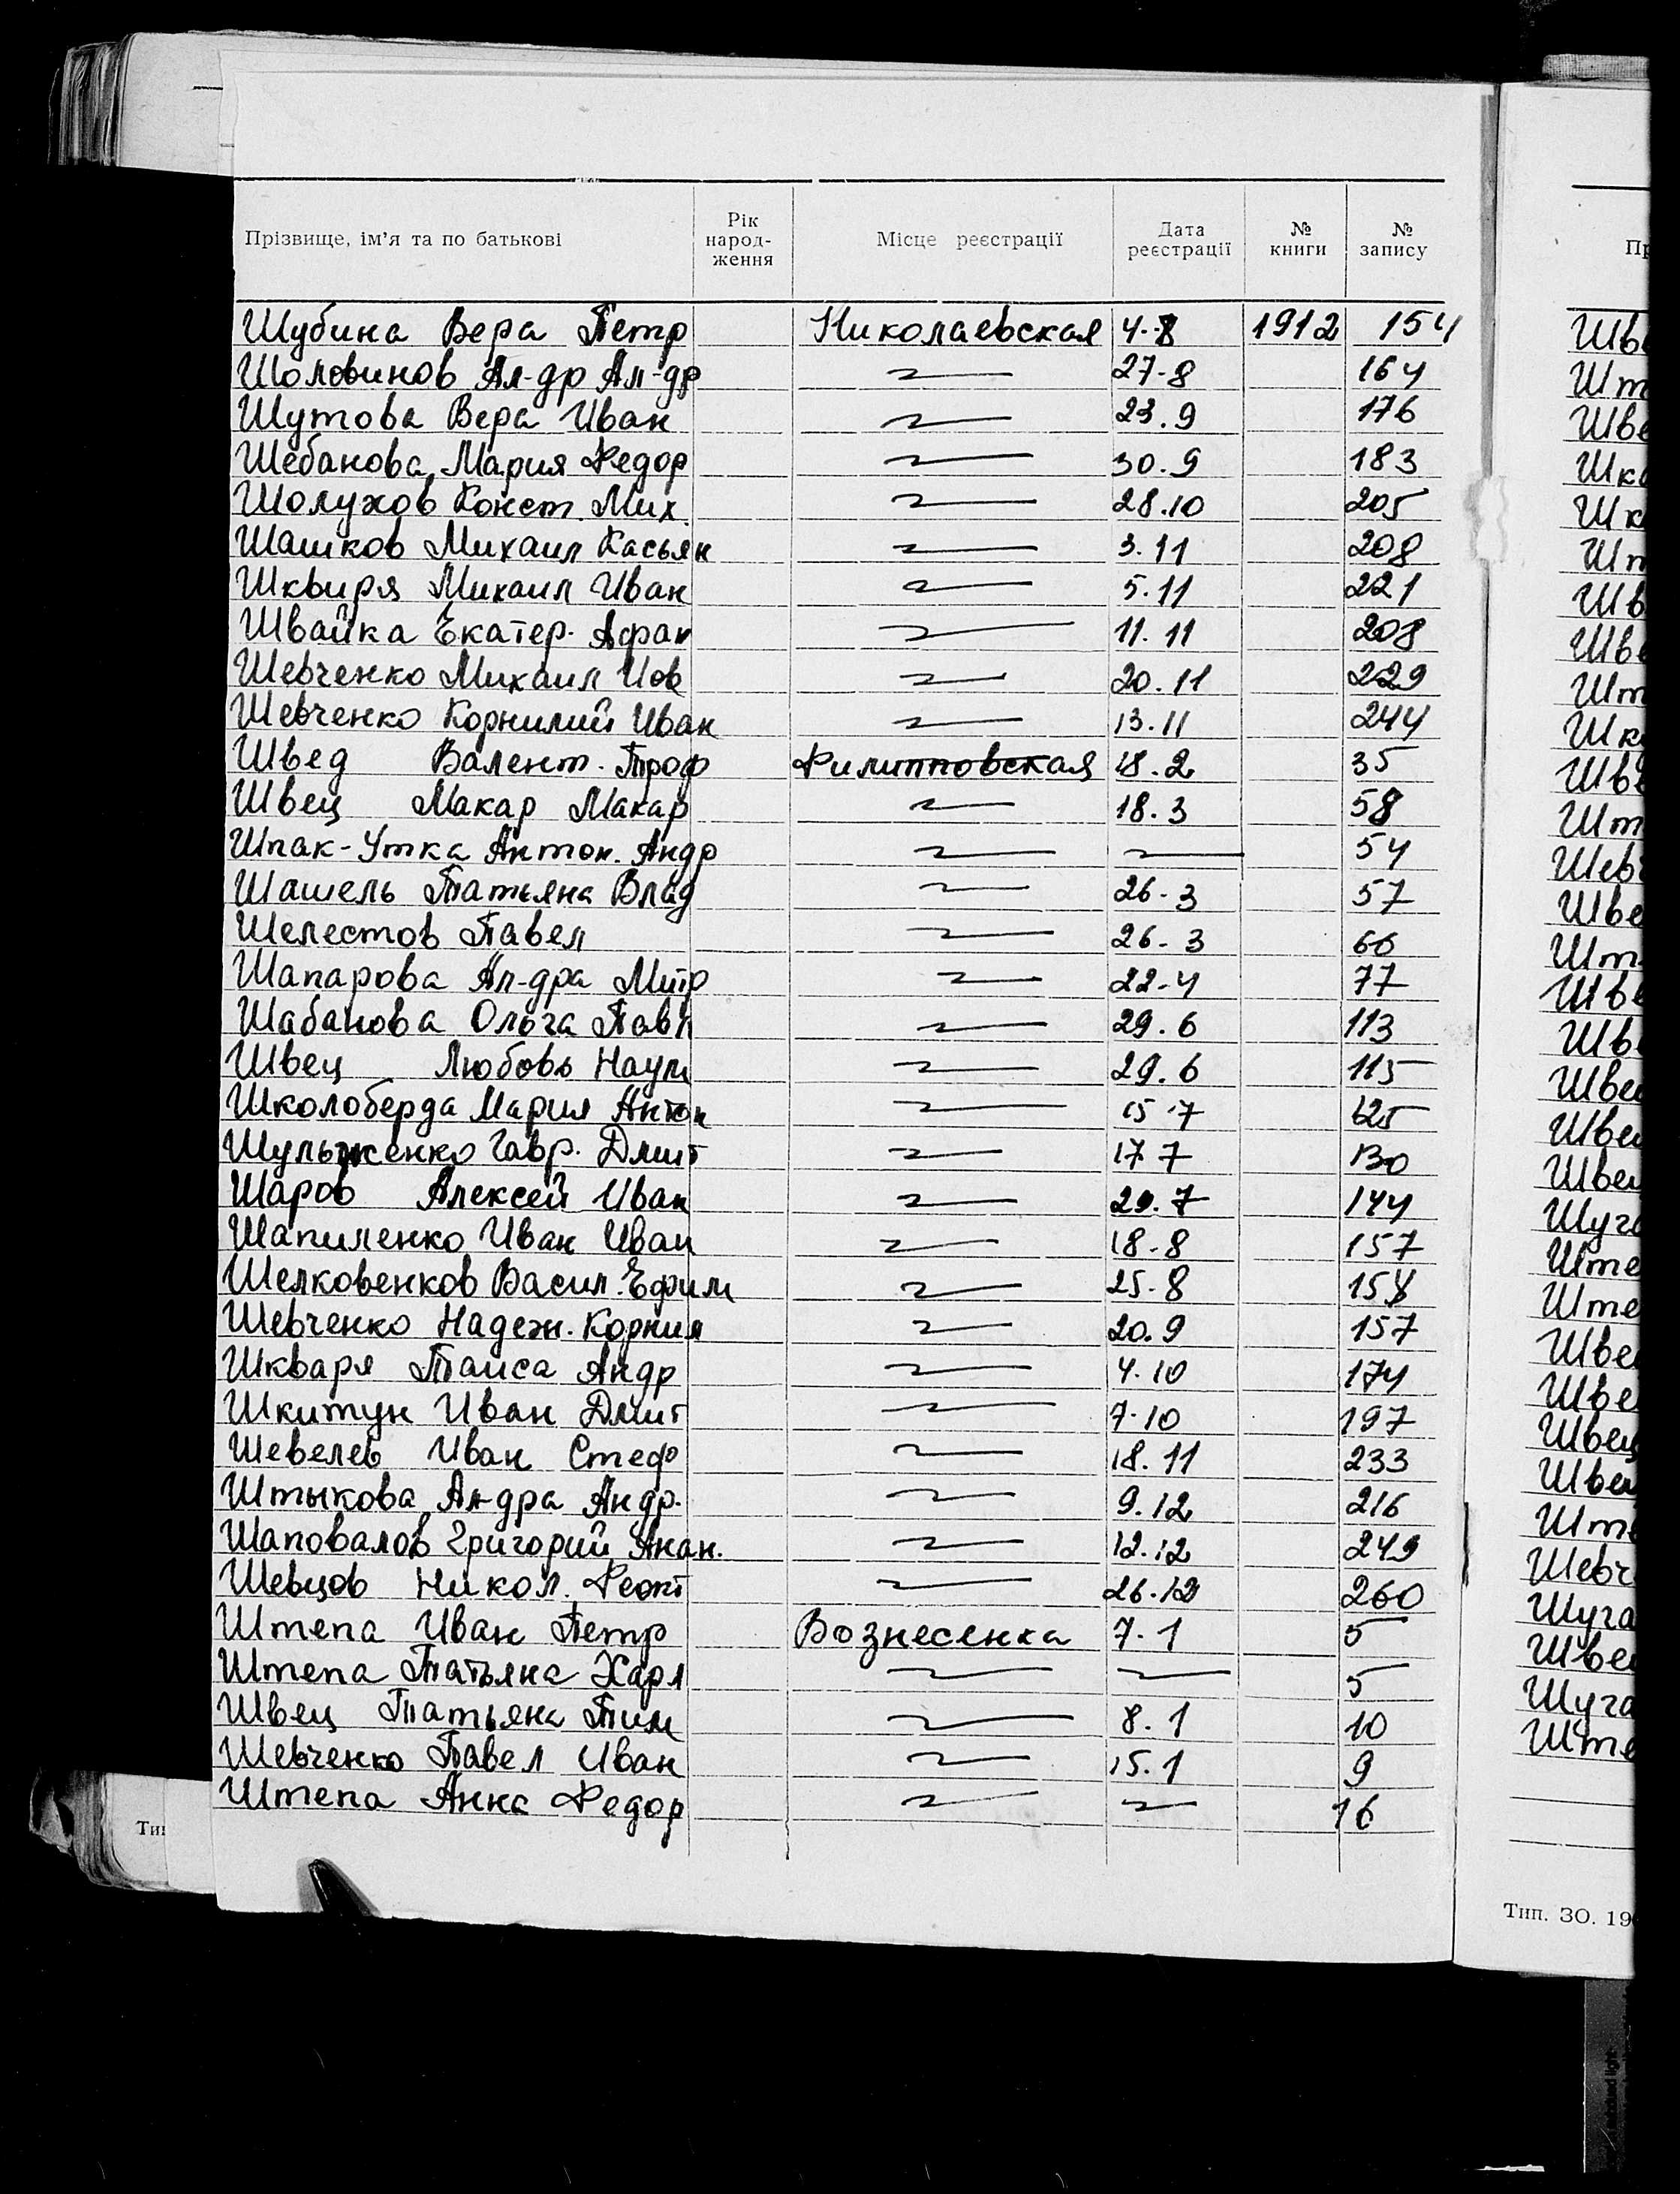 Прізвище, ім'я та по батькові Рік народ-ження Місце реєстрації Дата реєстрації № книги № запису
Шубина Вера Петр Николаевская 4-8 1912 154
Шоловинов Ал-др Ал-др — 27-8 164
Шутова Вера Иван — 23.9 176
Шебанова Мария Федор — 30.9 183
Шолухов Конст. Мих. — 28.10 205
Шашков Михаил Касьян — 3.11 208
Шквиря Михаил Иван — 5.11 221
Швайка Екатер. Афан — 11.11 208
Шевченко Михаил Иов — 20.11 229
Шевченко Корнилий Иван — 13.11 244
Швед Валент. Троф Филипповская 18.2 35
Швец Макар Макар — 18.3 58
Шпак-Утка Антон. Андр — — 54
Шашель Татьяна Влад — 26-3 57
Шелестов Павел — 26-3 66
Шапарова Ал-дра Митр — 22-4 77
Шабанова Ольга Павл — 29.6 113
Швец Любовь Наум — 29.6 115
Школоберда Мария Антон — 15.7 125
Шульженко Гавр. Дмит — 17 7 130
Шаров Алексей Иван — 29.7 144
Шапиленко Иван Иван — 18-8 157
Шелковенков Васил. Ефим — 25-8 158
Шевченко Надеж. Корнил — 20.9 157
Шкваря Таиса Андр — 4.10 174
Шкитун Иван Дмит — 7.10 197
Шевелев Иван Стеф — 18.11 233
Штыкова Ал-дра Андр. — 9.12 216
Шаповалов Григорий Анан. — 12.12 249
Шевцов Никол. Феокт — 26.12 260
Штепа Иван Петр Вознесенка 7.1 5
Штепа Татьяна Харл — — 5
Швец Татьяна Тим — 8.1 10
Шевченко Павел Иван — 15.1 9
Штепа Анна Федор — — 16
Тип. ЗО. 19